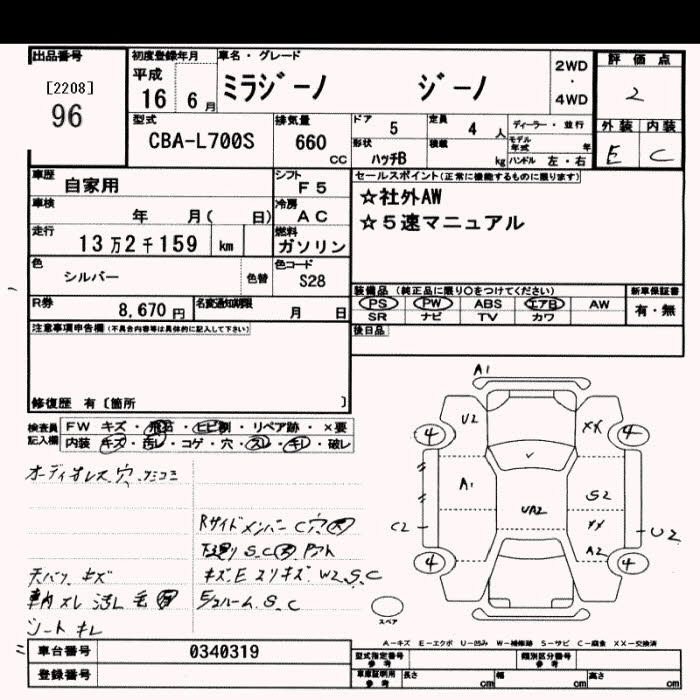 出品番号 初度登録年月 車名・グレード 2WD・4WD 評価点
[2208] 96 平成 16 6月 ミラジーノ ジーノ 2
型式 排気量 ドア 5 定員 4人 ディーラー・並行 外装 内装
CBA-L700S 660 CC 形状 ハッチB 積載 kg モデル年式 年 ハンドル 左・右 E C
車歴 自家用 シフト F5 セールスポイント(正常に機能するものに限ります)
車検 年 月( 日) 冷房 AC ☆社外AW
走行 13万2千159 km 燃料 ガソリン ☆5速マニュアル
色 シルバー 色替 色コード S28
装備品 (純正品に限り○をつけてください) 新車保証書
PS PW ABS エアB AW 有・無
SR ナビ TV カワ
R券 8,670円 名変通知期限 月 日
後日品
注意事項申告欄(不具合内容等は具体的に記入して下さい)
修復歴 有〔箇所 〕
検査員 FW キズ・飛石・ヒビ割・リペア跡・×要
記入欄 内装 キズ・汚レ・コゲ・穴・スレ・キレ・破レ
A1
U2 XX
4 4
A1 S2
UA2
C2 XX U2
A2
4 4
オーディオレス.穴.
Rサイドメンバー C穴
S.C
天バリ キズ キズ.E スリキズ W2.S.C
車内 スレ 汚レ 毛 S.C
シート キレ
スペア
A-キズ E-エクボ U-凹み W-補修跡 S-サビ C-腐食 XX-交換済
車台番号 0340319 型式指定番号 参考 類別区分番号 参考
登録番号 車庫証明用 参考 長さ cm 幅 cm 高さ cm